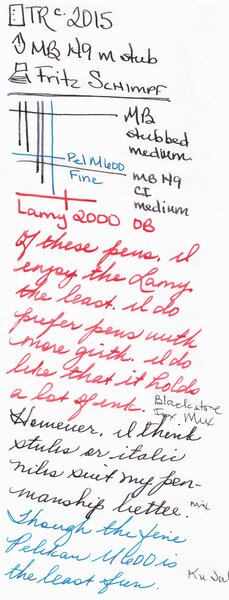 TR c. 2015
MB 149 m stub
Fritz Schimpf
MB
stubbed
medium
Pel M600
Fine
MB 149
CI
medium
Lamy 2000 OB
Of these pens, I
enjoy the Lamy
the least. I do
prefer pens with
more girth. I do
like that it holds
a lot of ink.
Blackstone
For. Mux
However, I think
stubs or italic
nibs suit my pen-
manship better.
mix
Though the fine
Pelikan M600 is
the least fun.